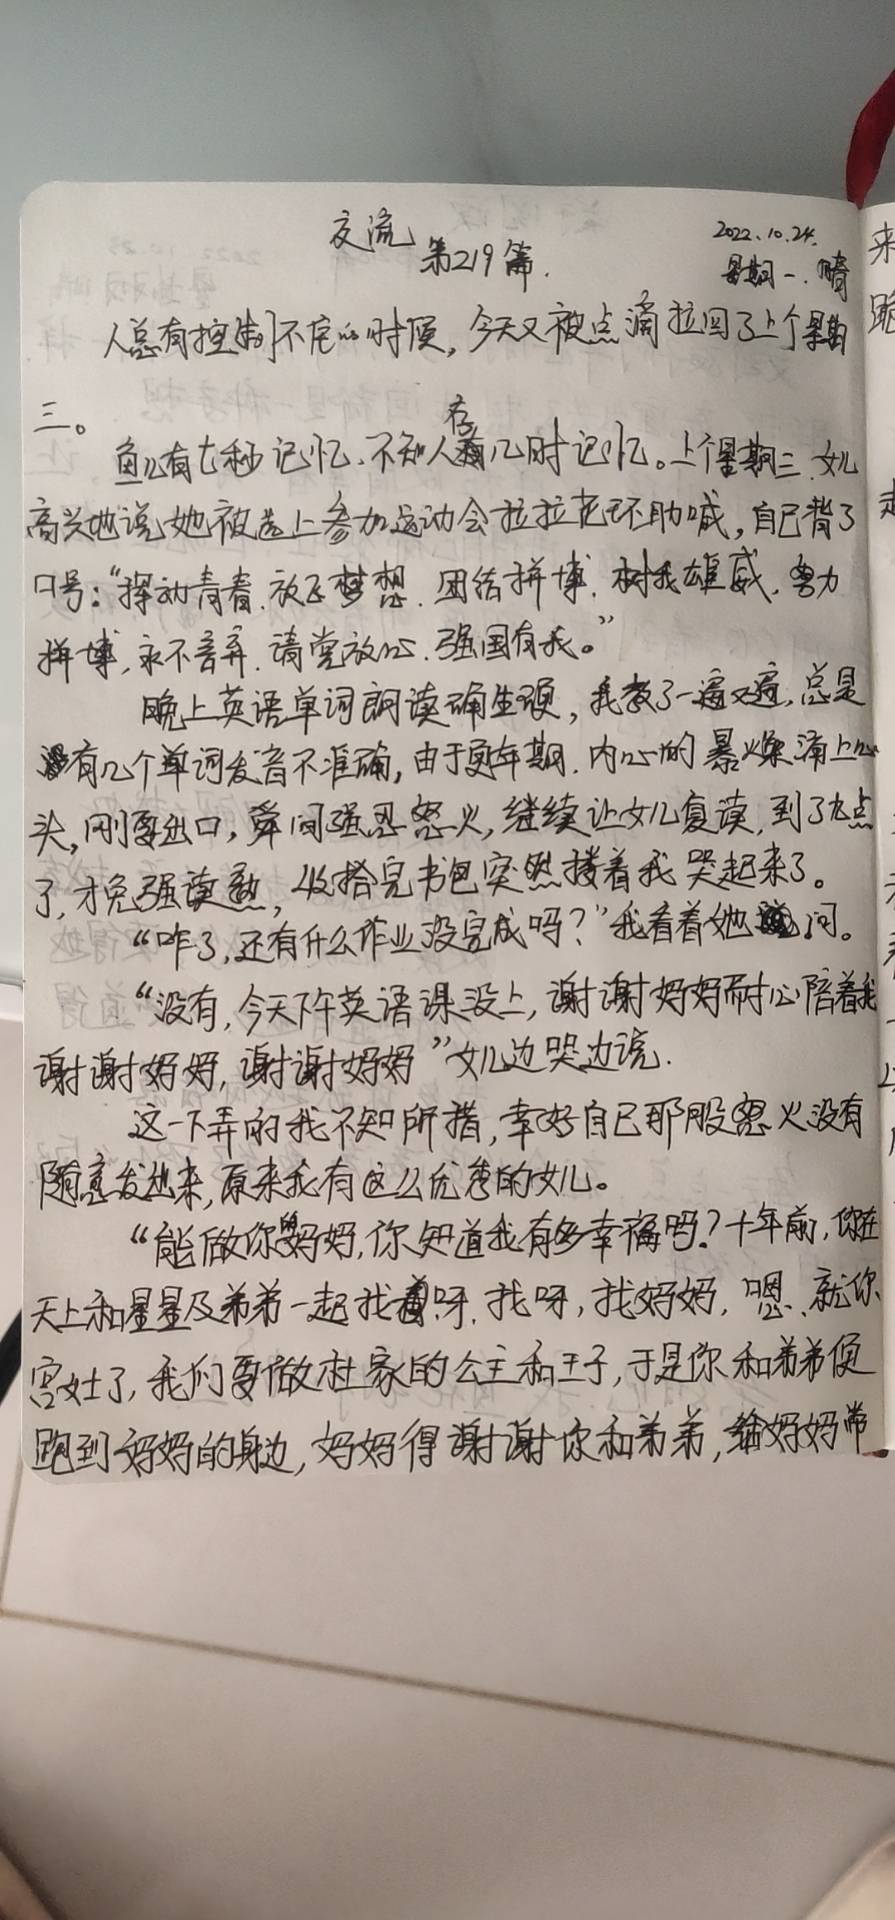 交流
第219篇.
2022.10.24.
星期一.晴
人总有控制不住的时候,今天又被点滴拉回了上个星期
三。
鱼儿有七秒记忆.不知人存几时记忆。上个星期三.女儿
高兴地说她被选上参加运动会拉拉花环助喊,自己背了
口号:“挥动青春.放飞梦想.团结拼博.树我雄威.努力
拼博,永不言弃.请党放心.强国有我。”
晚上英语单词朗读确生硬,我教了一遍又遍,总是
有几个单词发音不准确,由于更年期.内心的暴燥涌上心
头,刚要出口,舜间强忍怒火,继续让女儿复读,到了九点
了,才免强读熟,收搭完书包突然搂着我哭起来了。
“咋了,还有什么作业没完成吗?”我看着她问。
“没有,今天下午英语课没上,谢谢妈妈耐心陪着我
谢谢妈妈,谢谢妈妈”女儿边哭边说.
这一下弄的我不知所措,幸好自已那股怒火没有
随意发出来,原来我有这么优秀的女儿。
“能做你妈妈,你知道我有多幸福吗?十年前,你在
天上和星星及弟弟一起找呀.找呀,找妈妈,嗯.就你
宫女士了,我们要做杜家的公主和王子,于是你和弟弟便
跑到妈妈的身边,妈妈得谢谢你和弟弟,给妈妈带
来
跑